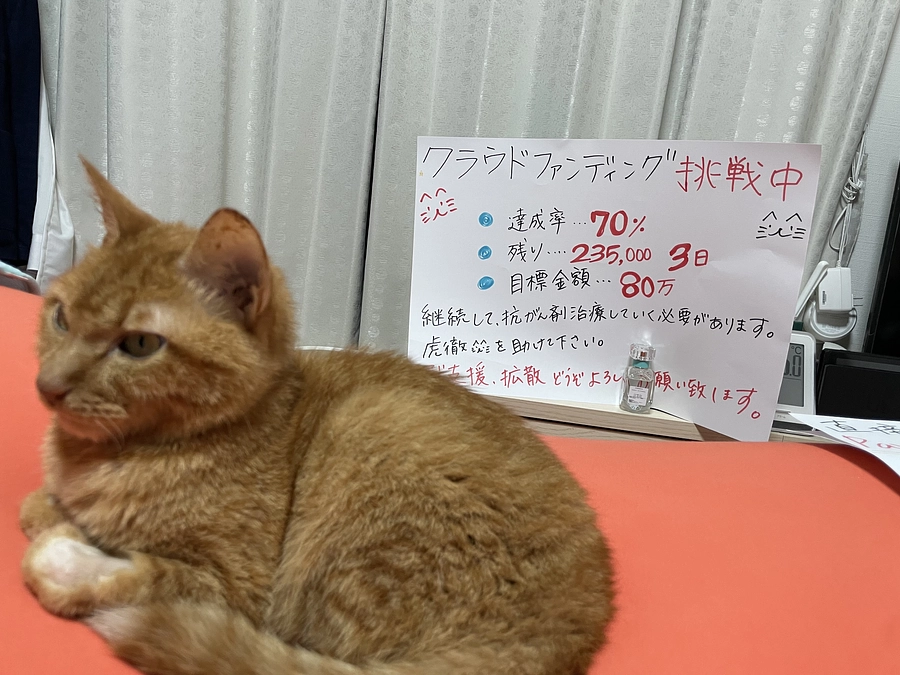 クラウドファンディング 挑戦中
達成率…70%
残り…. 235,000 3日
目標金額… 80万
継続して、抗がん剤治療していく必要があります。
虎徹 を助けて下さい。
支援、拡散 どうぞよろし 願い致します。